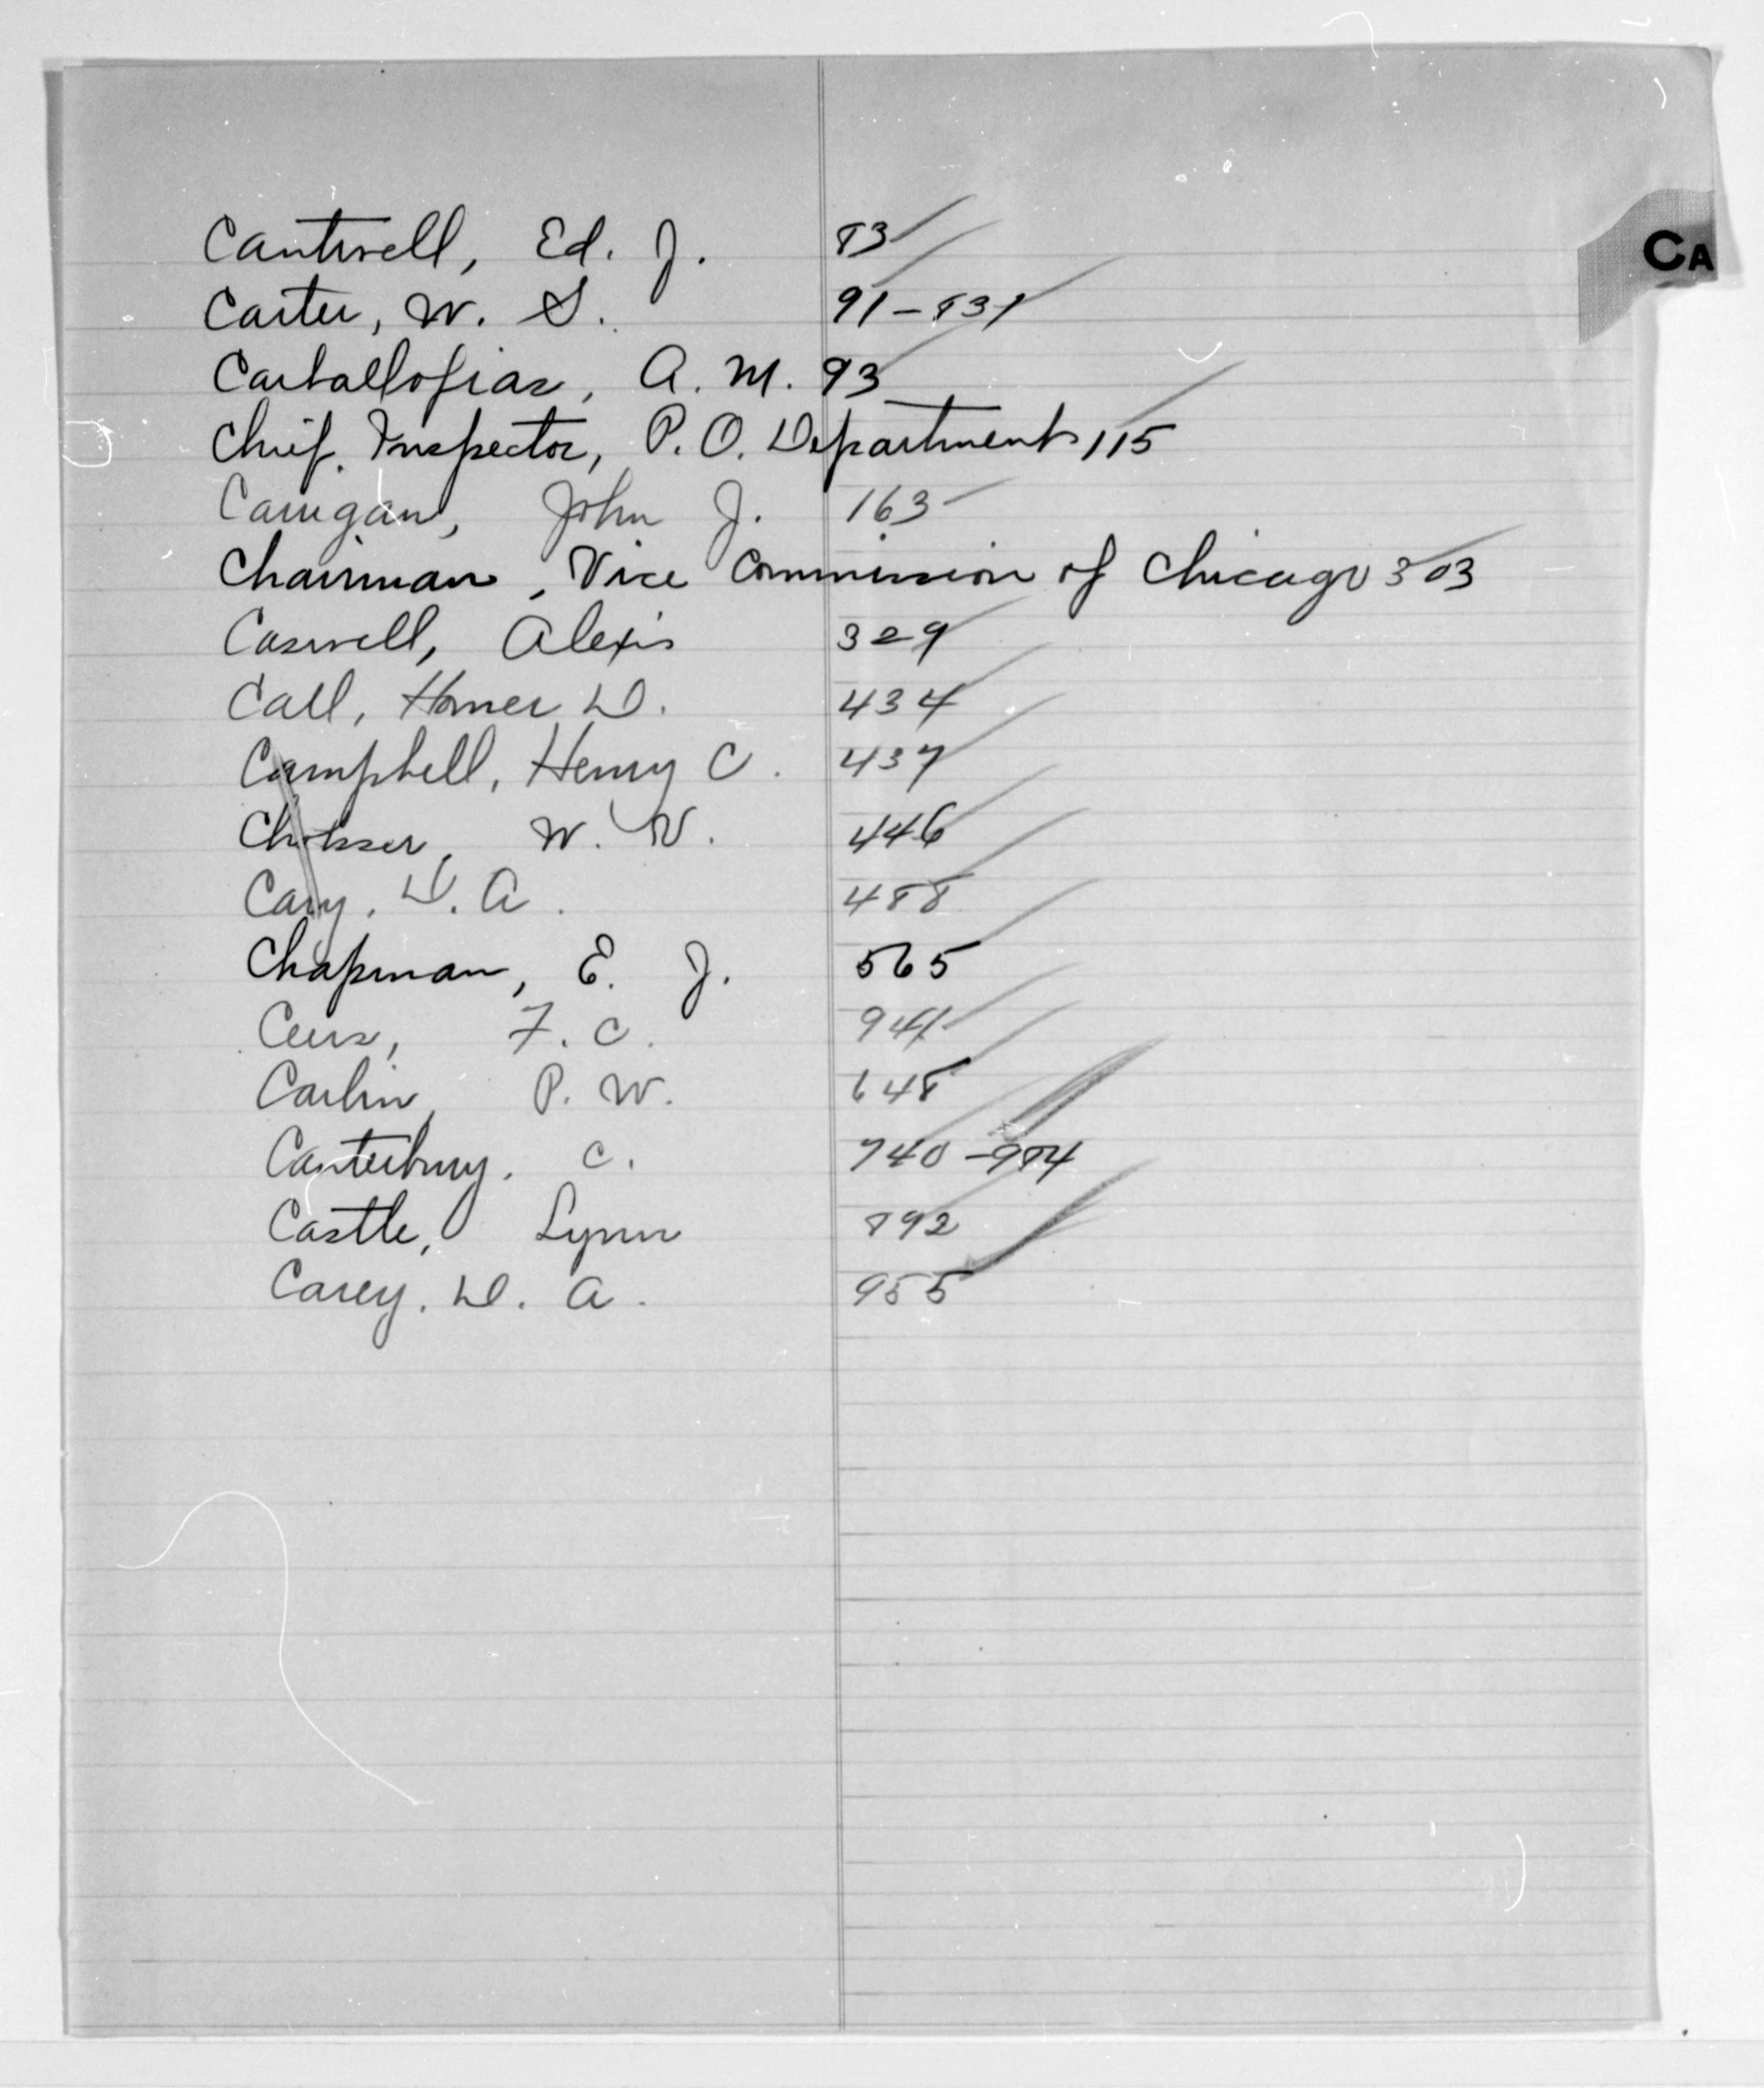 CA
Cantwell, Ed. J. 83
Carter, W. S. 91-831
Carballofiaz, A. M. 93
Chief. Inspector, P.O. Department 115
Carrigan, John J. 163
Chairman, Vice Commission of Chicago 303
Caswell, Alexis 329
Call, Homer D. 434
Campbell, Henry C. 437
W. W. 446
Cary, D. A. 488
Chapman, E. J. 565
F. C. 941
Carlin, P. W. 648
Canterbury, C. 740-984
Castle, Lynn 892
Carey, D. A. 955